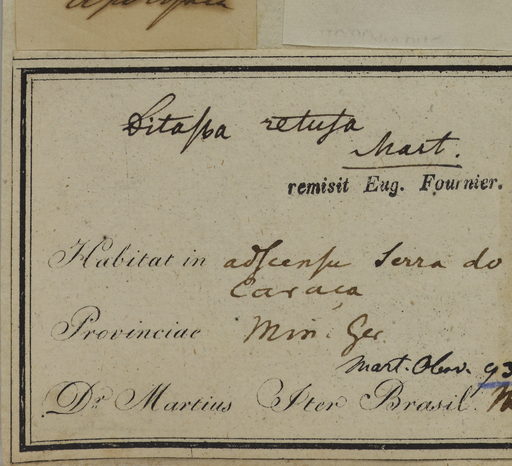 Ditaſsa retuſa
Mart.
remisit Eug. Fournier.
Habitat in adſcenſu Serra do
Caraça
Provinciae Min. Ger
Mart. Obsv. 93
Dr. Martius Iter Brasil.